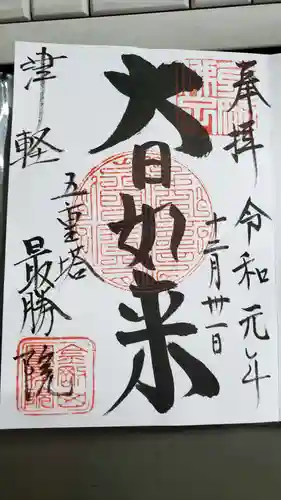 奉拝
令和元年
十二月卅一日
大日如来
五重塔
津軽
最勝院